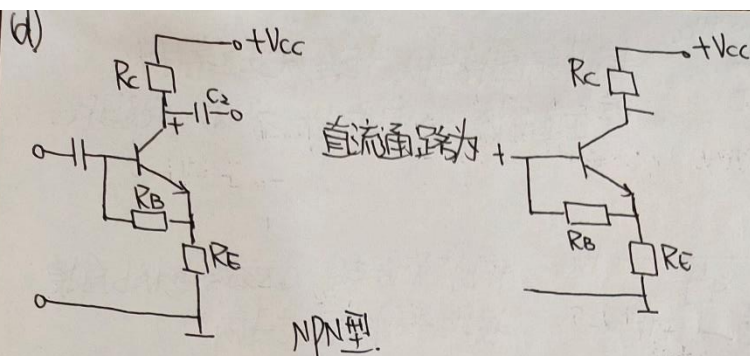 (d)
+Vcc
Rc
C2
+
RB
RE
直流通路为
+Vcc
Rc
+
RB
RE
NPN型.